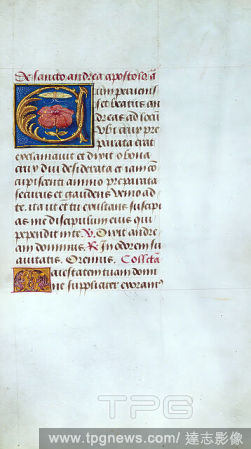 De sancto andrea apostolo ā
Cum perueniss
set beatus an
dreas ad locū
vbi crux pre
parata erat
exclamauit et dixit o bona
crux diu desiderata et iam cō
cupiscenti animo preparata
securus et gaudens venio ad
te. ita ut et tu exultans suscipi
as me discipulum eius qui
pependit in te. V. Dilexit andre
am dominus. R. In odorem su
auitatis. Oremus. Collecta
Maiestatem tuam domi
ne suppliciter exoram9
TPG
www.tpgnews.com/ 達志影像